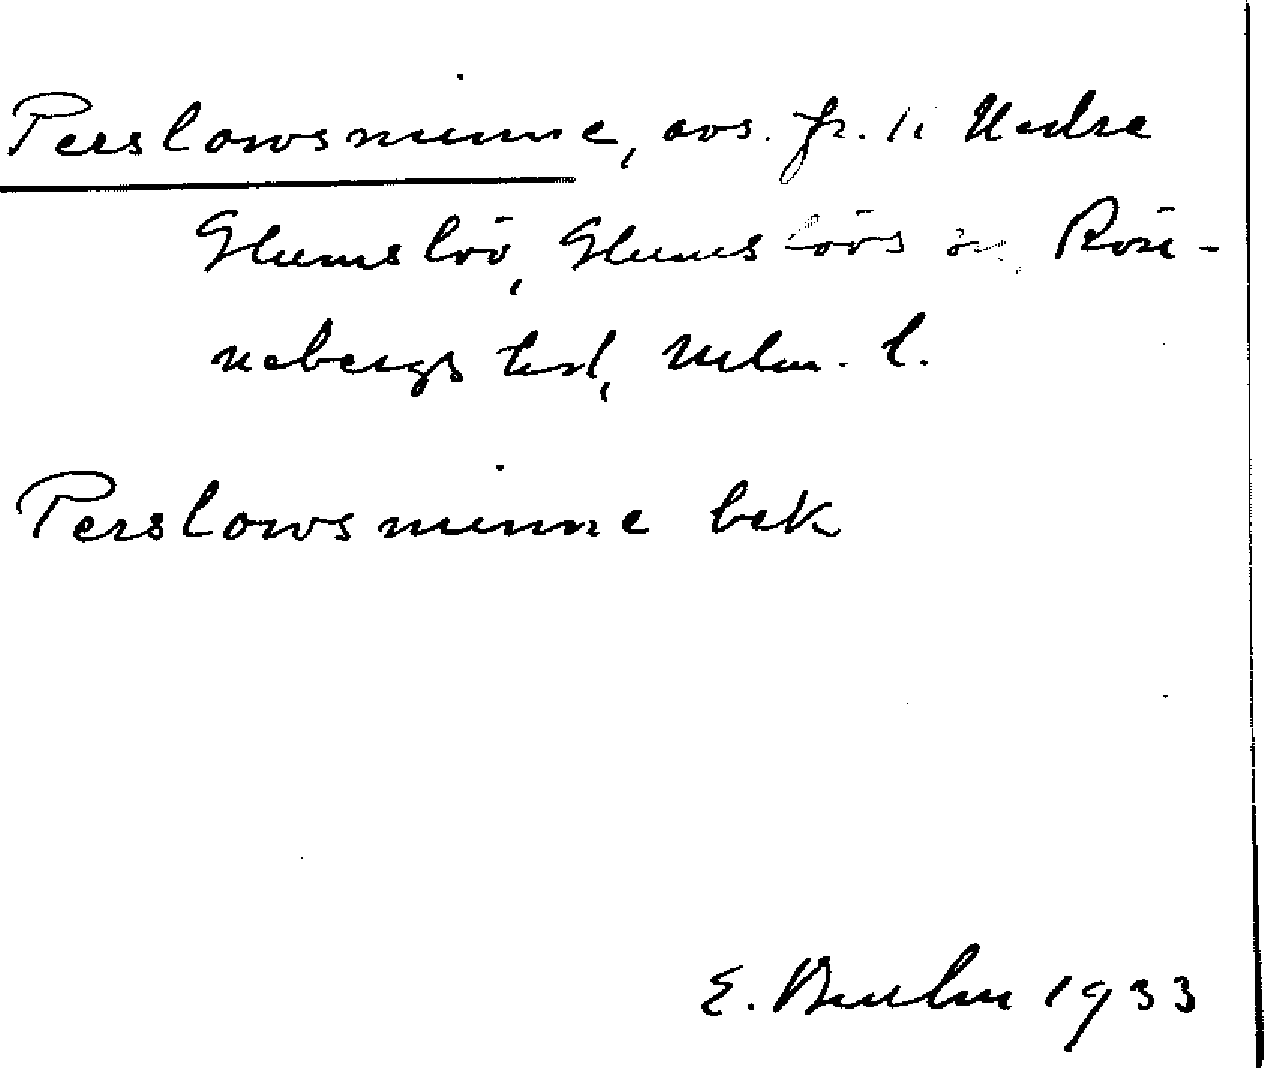 Perslowsminne, avs. fr. 11 Nedre
Glumslöv, Glumslövs sn, Rön-
nebergs hd, Mlm. l.
Perslowsminne bek
E. 1933